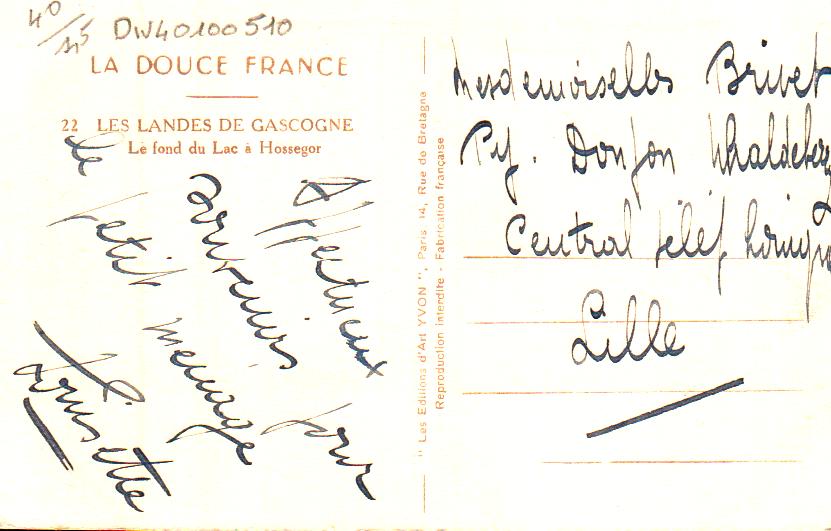 40/45 DW40100510
LA DOUCE FRANCE
22 LES LANDES DE GASCOGNE
Le fond du Lac à Hossegor
Affectueux
souvenirs pour
le petit ménage
Louisette
" Les Editions d'Art YVON ", Paris 14, Rue de Bretagne
Reproduction interdite - Fabrication française
Mesdemoiselles Brivet
Donjon
Central téléf
Lille